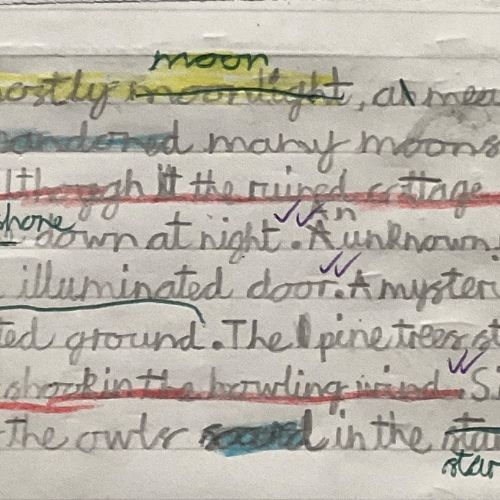 moon
ostly moonlight, a mea
andoned many moons
lthough it the ruined cottage
shone down at night. An
A unknown
illuminated door. A myster
ted ground. The pine trees st
shook in the howling wind. Si
the owls in the
star